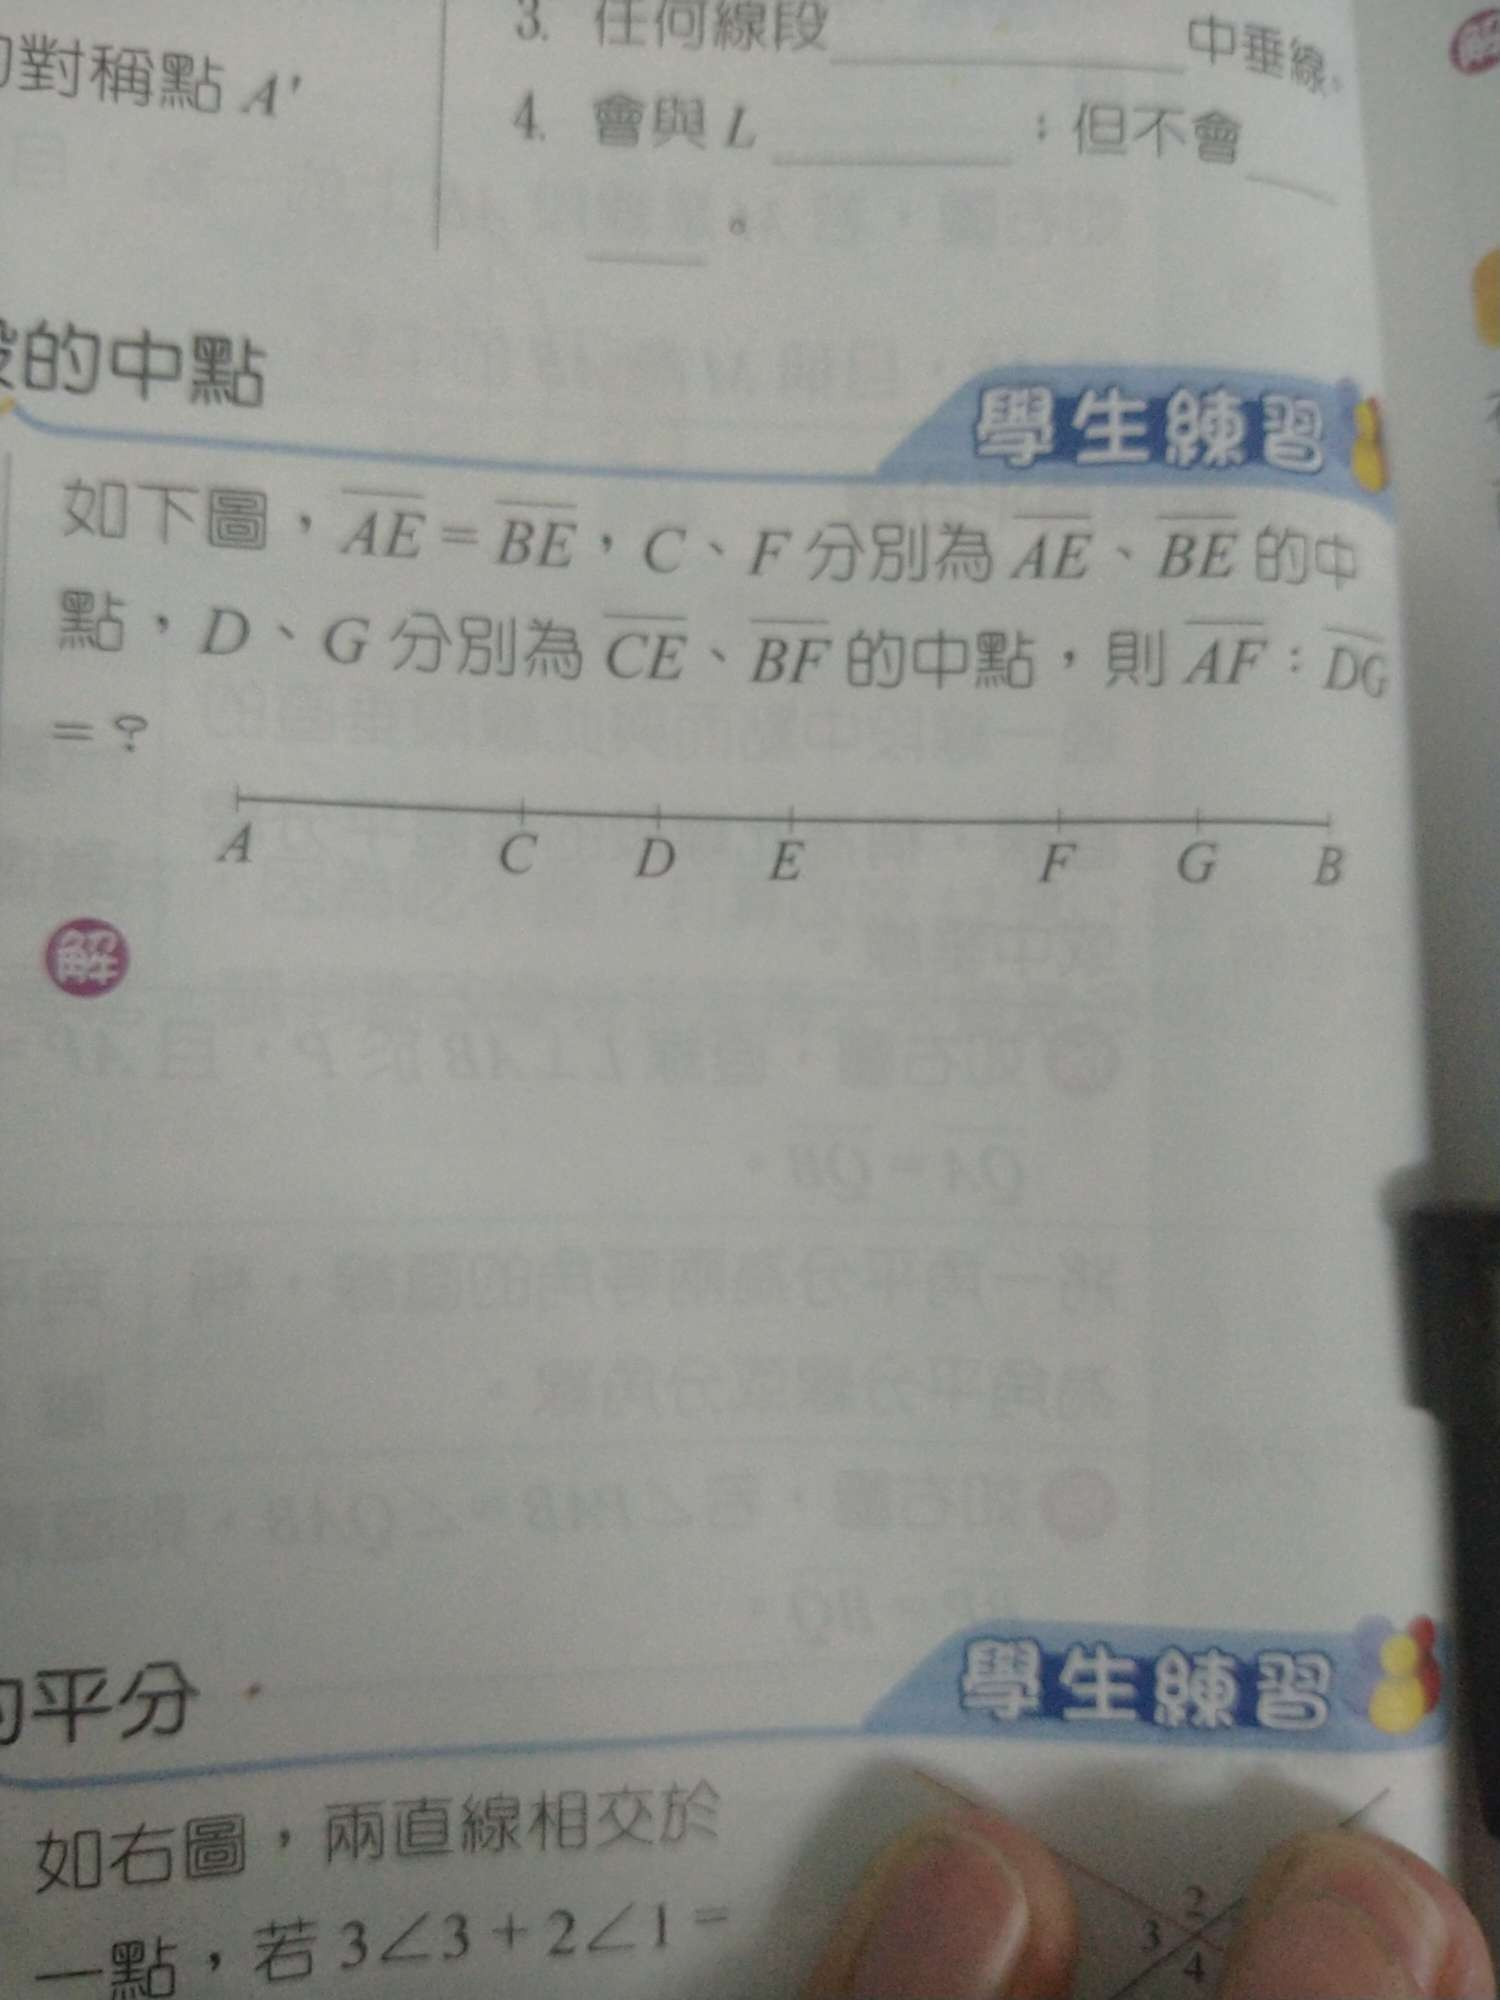 對稱點 A'
3. 任何線段 中垂線。
4. 會與 L ；但不會
。
的中點
學生練習
如下圖，AE = BE，C、F 分別為 AE、BE 的中
點，D、G 分別為 CE、BF 的中點，則 AF：DG
= ？
A C D E F G B
解
的平分
學生練習
如右圖，兩直線相交於
一點，若 3∠3 + 2∠1 =
2
3
4